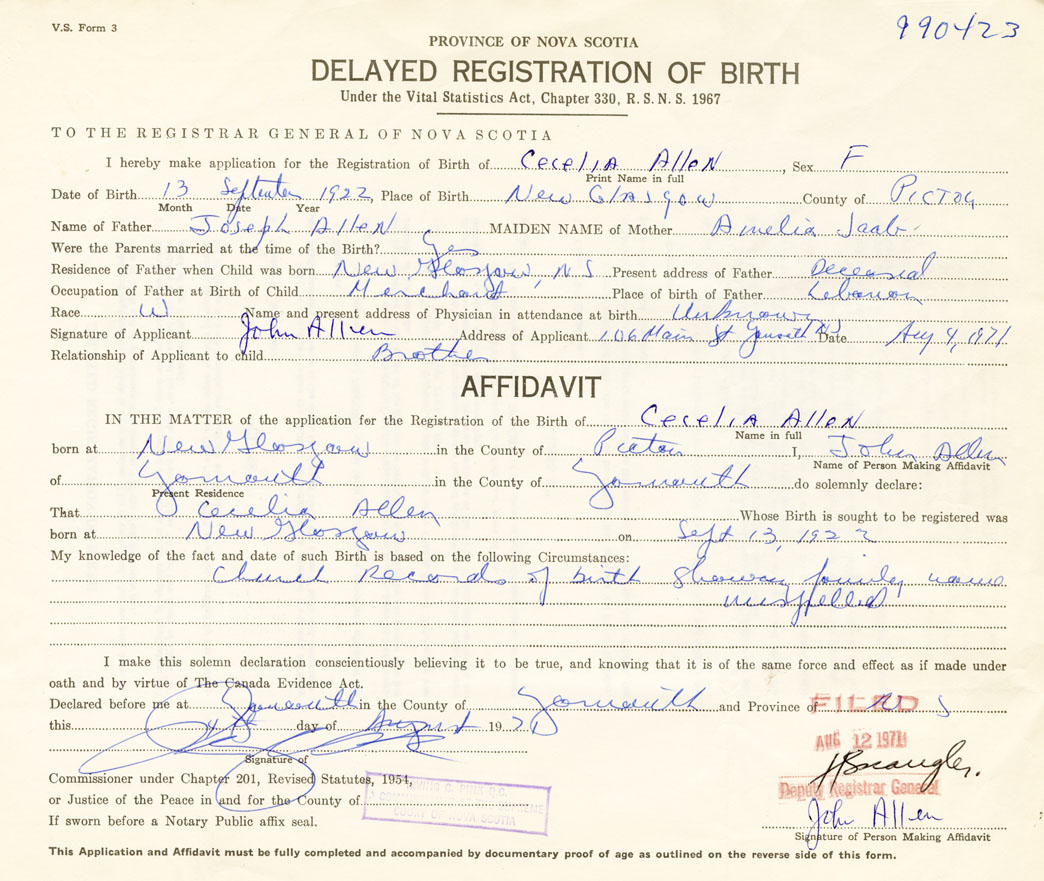 V.S. Form 3
990423
PROVINCE OF NOVA SCOTIA
DELAYED REGISTRATION OF BIRTH
Under the Vital Statistics Act, Chapter 330, R.S.N.S. 1967
TO THE REGISTRAR GENERAL OF NOVA SCOTIA
I hereby make application for the Registration of Birth of Cecelia Allen, Sex F
Print Name in full
Date of Birth 13 September 1922, Place of Birth New Glasgow County of Pictou
Month Date Year
Name of Father Joseph Allen MAIDEN NAME of Mother Amelia Jaab
Were the Parents married at the time of the Birth? Yes
Residence of Father when Child was born New Glasgow, NS Present address of Father Deceased
Occupation of Father at Birth of Child Merchant Place of birth of Father Lebanon
Race W Name and present address of Physician in attendance at birth Unknown
Signature of Applicant John Allen Address of Applicant 106 Main St Yarmouth NS Date Aug 4, 1971
Relationship of Applicant to child Brother
AFFIDAVIT
IN THE MATTER of the application for the Registration of the Birth of Cecelia Allen
Name in full
born at New Glasgow in the County of Pictou I, John Allen
Name of Person Making Affidavit
of Yarmouth in the County of Yarmouth do solemnly declare:
Present Residence
That Cecelia Allen Whose Birth is sought to be registered was
born at New Glasgow on Sept 13, 1922
My knowledge of the fact and date of such Birth is based on the following Circumstances:
Church Records of birth showing family name
misspelled
I make this solemn declaration conscientiously believing it to be true, and knowing that it is of the same force and effect as if made under
oath and by virtue of The Canada Evidence Act.
Declared before me at Yarmouth in the County of Yarmouth and Province of N S
FILED
this 4th day of August 1971
AUG 12 1971
Signature of
Commissioner under Chapter 201, Revised Statutes, 1954,
Deputy Registrar General
or Justice of the Peace in and for the County of
COURT OF NOVA SCOTIA
John Allen
If sworn before a Notary Public affix seal.
Signature of Person Making Affidavit
This Application and Affidavit must be fully completed and accompanied by documentary proof of age as outlined on the reverse side of this form.